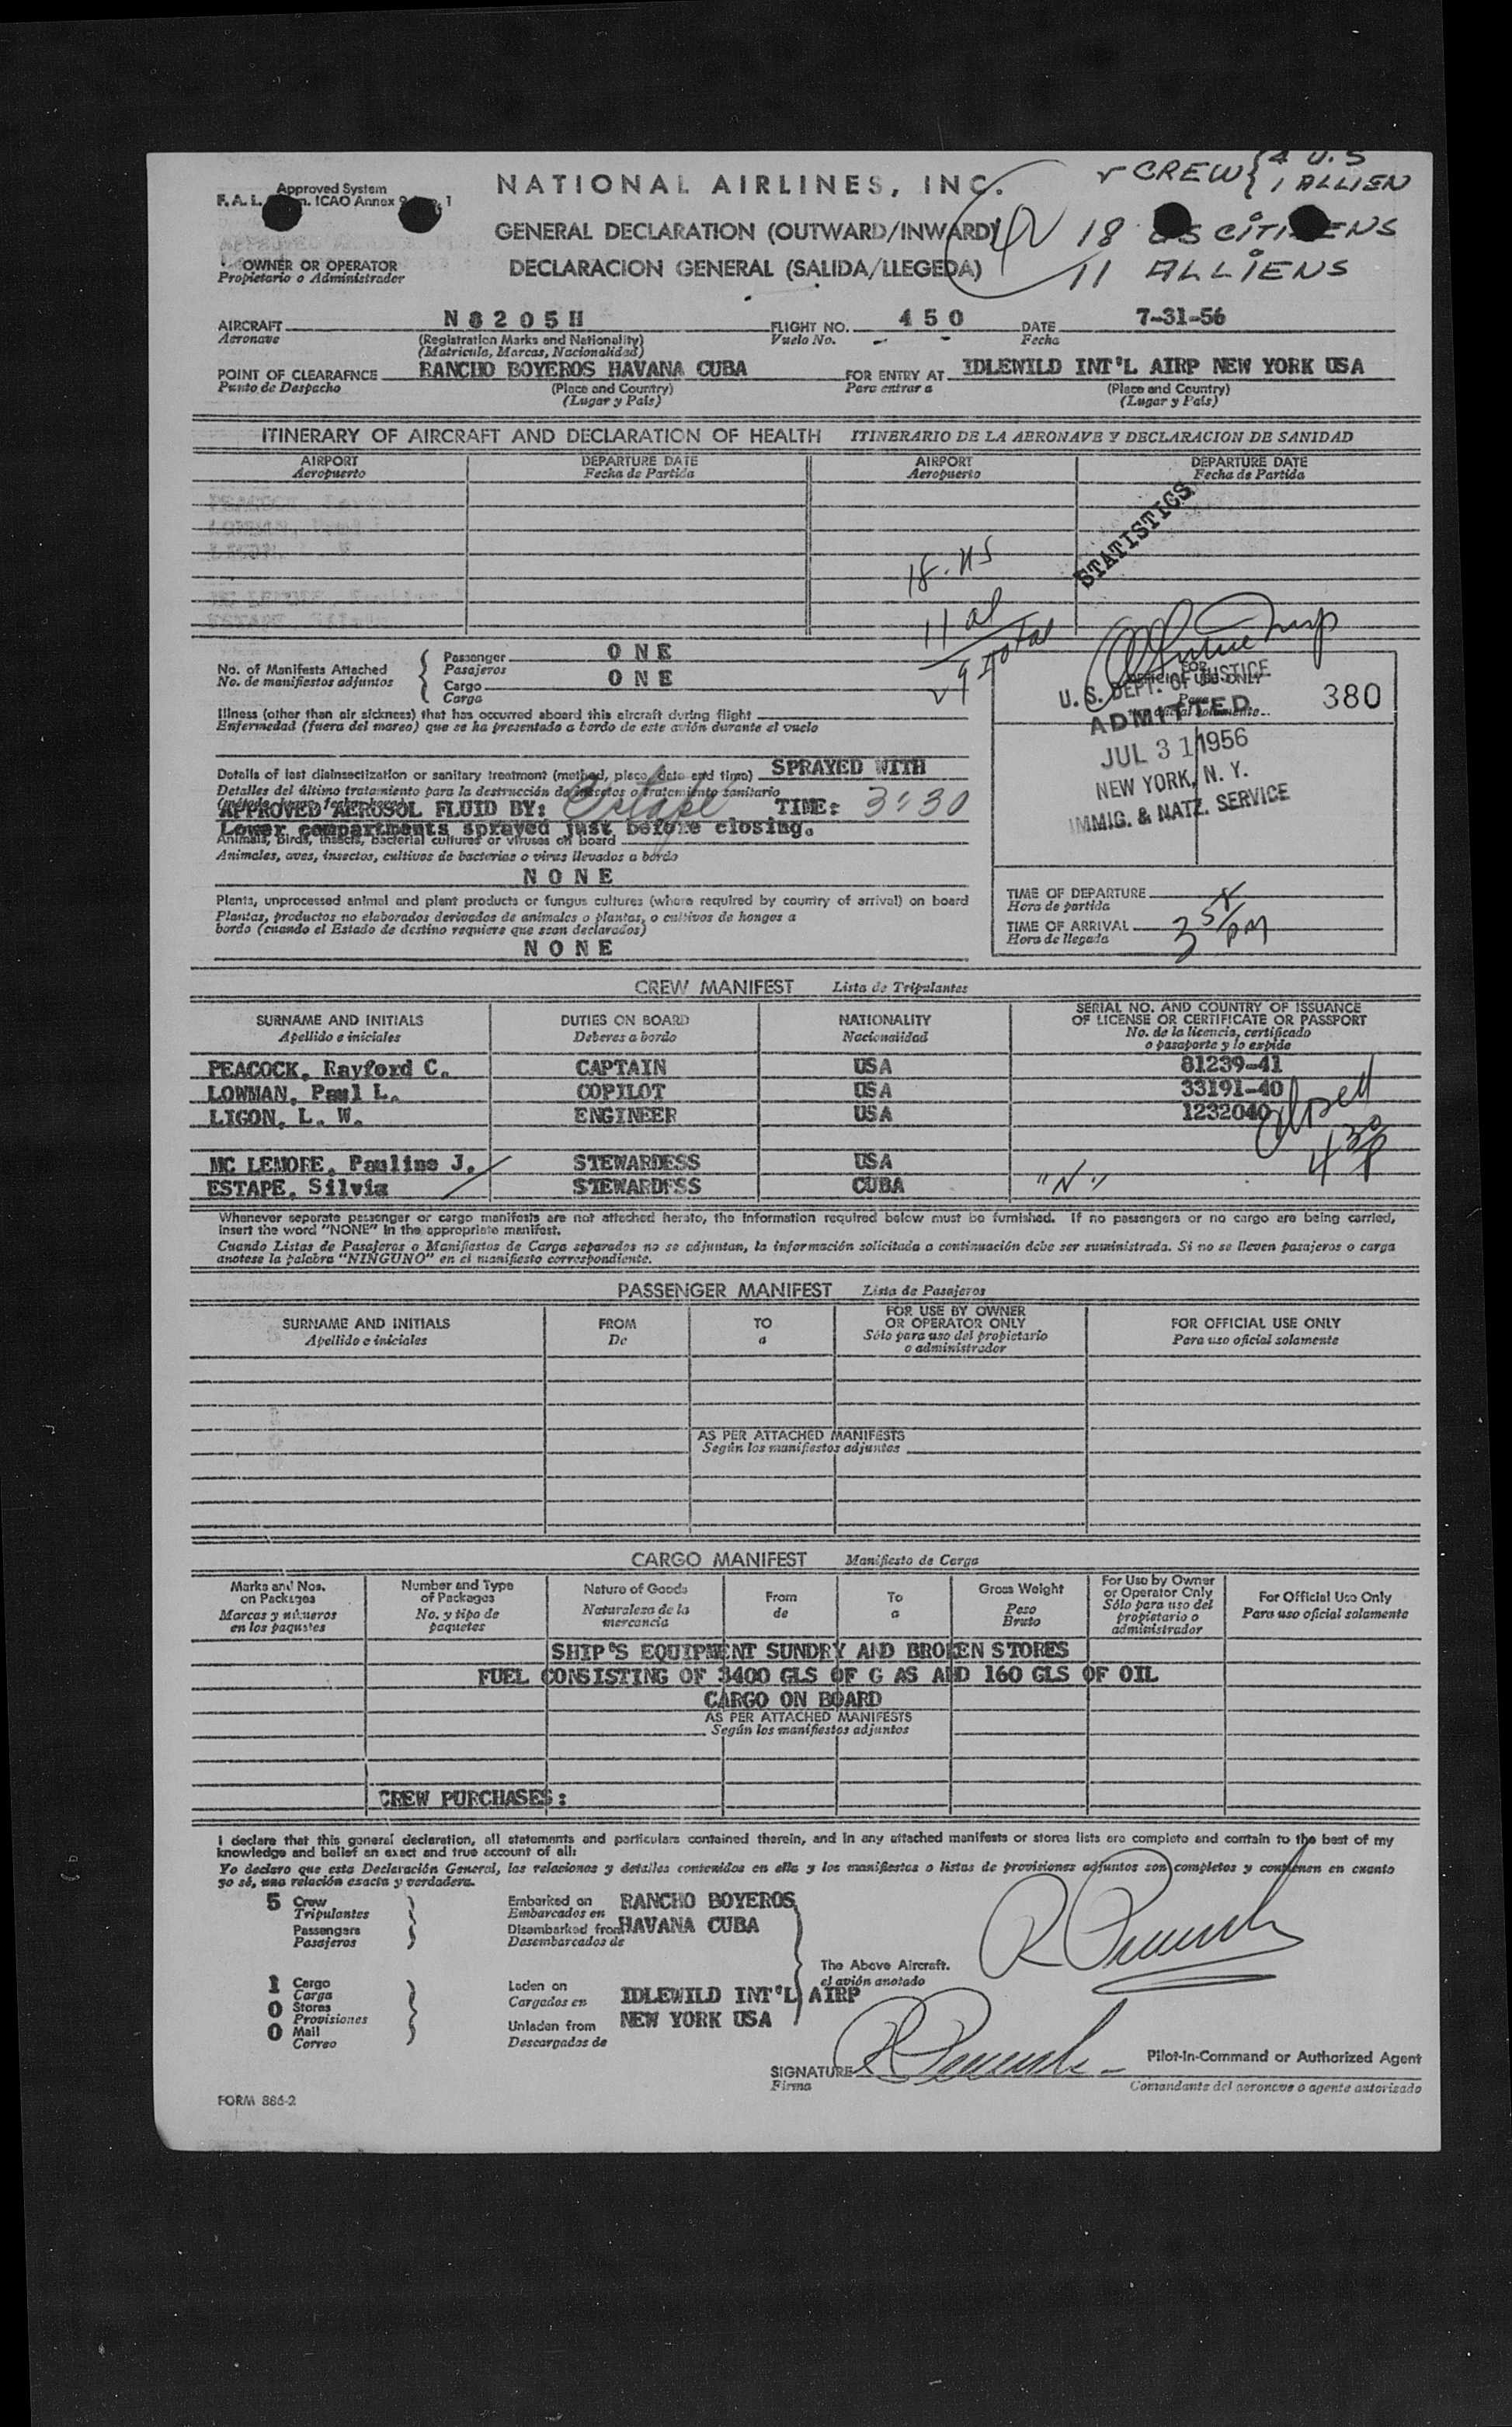 Approved System
F. A. L. n. ICAO Annex 9 1
NATIONAL AIRLINES, INC.
CREW { 4 U.S
1 ALLIEN
GENERAL DECLARATION (OUTWARD/INWARD)
18 US CITIZENS
11 ALLIENS
OWNER OR OPERATOR
Propietario o Administrador
DECLARACION GENERAL (SALIDA/LLEGEDA)
AIRCRAFT N 8 2 0 5 H FLIGHT NO. 4 5 0 DATE 7-31-56
Aeronave (Registration Marks and Nationality) Vuelo No. Fecha
(Matricula, Marcas, Nacionalidad)
POINT OF CLEARAFNCE RANCHO BOYEROS HAVANA CUBA FOR ENTRY AT IDLEWILD INT'L AIRP NEW YORK USA
Punto de Despacho (Place and Country) Para entrar a (Place and Country)
(Lugar y País) (Lugar y País)
ITINERARY OF AIRCRAFT AND DECLARATION OF HEALTH ITINERARIO DE LA AERONAVE Y DECLARACION DE SANIDAD
AIRPORT DEPARTURE DATE AIRPORT DEPARTURE DATE
Aeropuerto Fecha de Partida Aeropuerto Fecha de Partida
STATISTICS
18. US
11 al
29 Total
No. of Manifests Attached Passenger O N E
No. de manifiestos adjuntos Pasajeros
Cargo O N E
Carga
FOR
OFFICIAL USE ONLY
Para
uso oficial solamente
380
U. S. DEPT. OF JUSTICE
ADMITTED
JUL 31 1956
NEW YORK, N. Y.
IMMIG. & NATZ. SERVICE
Illness (other than air sickness) that has occurred aboard this aircraft during flight
Enfermedad (fuera del mareo) que se ha presentado a bordo de este avión durante el vuelo
Details of last disinsectization or sanitary treatment (method, place, date and time) SPRAYED WITH
Detalles del último tratamiento para la destrucción de insectos o tratamiento sanitario
APPROVED AEROSOL FLUID BY: Estape TIME: 3:30
Lower compartments sprayed just before closing.
Animals, birds, insects, bacterial cultures or viruses on board
Animales, aves, insectos, cultivos de bacterias o virus llevados a bordo
N O N E
Plants, unprocessed animal and plant products or fungus cultures (where required by country of arrival) on board
Plantas, productos no elaborados derivados de animales o plantas, o cultivos de hongos a
bordo (cuando el Estado de destino requiere que sean declarados)
N O N E
TIME OF DEPARTURE
Hora de partida
TIME OF ARRIVAL 3 58 PM
Hora de llegada
CREW MANIFEST Lista de Tripulantes
SURNAME AND INITIALS DUTIES ON BOARD NATIONALITY SERIAL NO. AND COUNTRY OF ISSUANCE
OF LICENSE OR CERTIFICATE OR PASSPORT
Apellido e iniciales Deberes a bordo Nacionalidad No. de la licencia, certificado
o pasaporte y lo expide
PEACOCK, Rayford C. CAPTAIN USA 81239-41
LOWMAN, Paul L. COPILOT USA 33191-40
LIGON, L. W. ENGINEER USA 1232040
closed
4 30 P
MC LEMORE, Pauline J. STEWARDESS USA
ESTAPE, Silvia STEWARDESS CUBA "N"
Whenever separate passenger or cargo manifests are not attached hereto, the information required below must be furnished. If no passengers or no cargo are being carried,
insert the word "NONE" in the appropriate manifest.
Cuando Listas de Pasajeros o Manifiestos de Carga separados no se adjuntan, la información solicitada a continuación debe ser suministrada. Si no se lleven pasajeros o carga
anotese la palabra "NINGUNO" en el manifiesto correspondiente.
PASSENGER MANIFEST Lista de Pasajeros
SURNAME AND INITIALS FROM TO FOR USE BY OWNER
OR OPERATOR ONLY FOR OFFICIAL USE ONLY
Apellido e iniciales De a Sólo para uso del propietario
o administrador Para uso oficial solamente
AS PER ATTACHED MANIFESTS
Según los manifiestos adjuntos
CARGO MANIFEST Manifiesto de Carga
Marks and Nos.
on Packages
Marcas y números
en los paquetes
Number and Type
of Packages
No. y tipo de
paquetes
Nature of Goods
Naturaleza de la
mercancia
From
de
To
a
Gross Weight
Peso
Bruto
For Use by Owner
or Operator Only
Sólo para uso del
propietario o
administrador
For Official Use Only
Para uso oficial solamente
SHIP'S EQUIPMENT SUNDRY AND BROKEN STORES
FUEL CONSISTING OF 3400 GLS OF G AS AND 160 GLS OF OIL
CARGO ON BOARD
AS PER ATTACHED MANIFESTS
Según los manifiestos adjuntos
CREW PURCHASES:
I declare that this general declaration, all statements and particulars contained therein, and in any attached manifests or stores lists are complete and contain to the best of my
knowledge and belief an exact and true account of all:
Yo declaro que esta Declaración General, las relaciones y detalles contenidos en ella y los manifiestos o listas de provisiones adjuntos son completos y contienen en cuanto
yo sé, una relación exacta y verdadera.
5 Crew
Tripulantes
Passengers
Pasajeros
Embarked on RANCHO BOYEROS
Embarcados en
Disembarked from HAVANA CUBA
Desembarcados de
The Above Aircraft.
el avión anotado
1 Cargo
Carga
0 Stores
Provisiones
0 Mail
Correo
Laden on IDLEWILD INT'L AIRP
Cargados en
Unladen from NEW YORK USA
Descargados de
SIGNATURE
Firma
Pilot-In-Command or Authorized Agent
Comandante del aeronave o agente autorizado
FORM 886-2